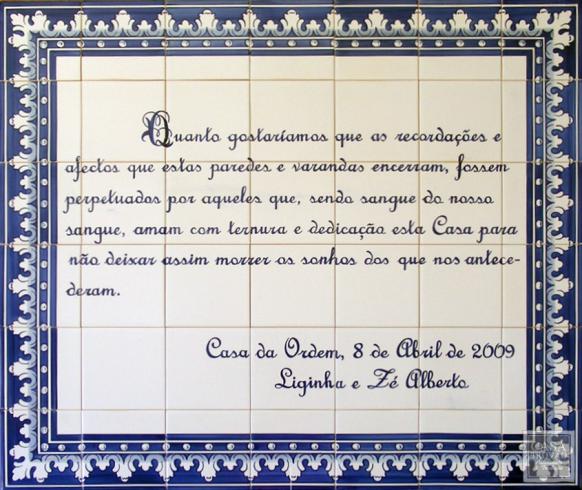 Quanto gostaríamos que as recordações e
afectos que estas paredes e varandas encerram, fossem
perpetuados por aqueles que, sendo sangue do nosso
sangue, amam com ternura e dedicação esta Casa para
não deixar assim morrer os sonhos dos que nos antece-
deram.
Casa da Ordem, 8 de Abril de 2009
Liginha e Zé Alberto
CASA